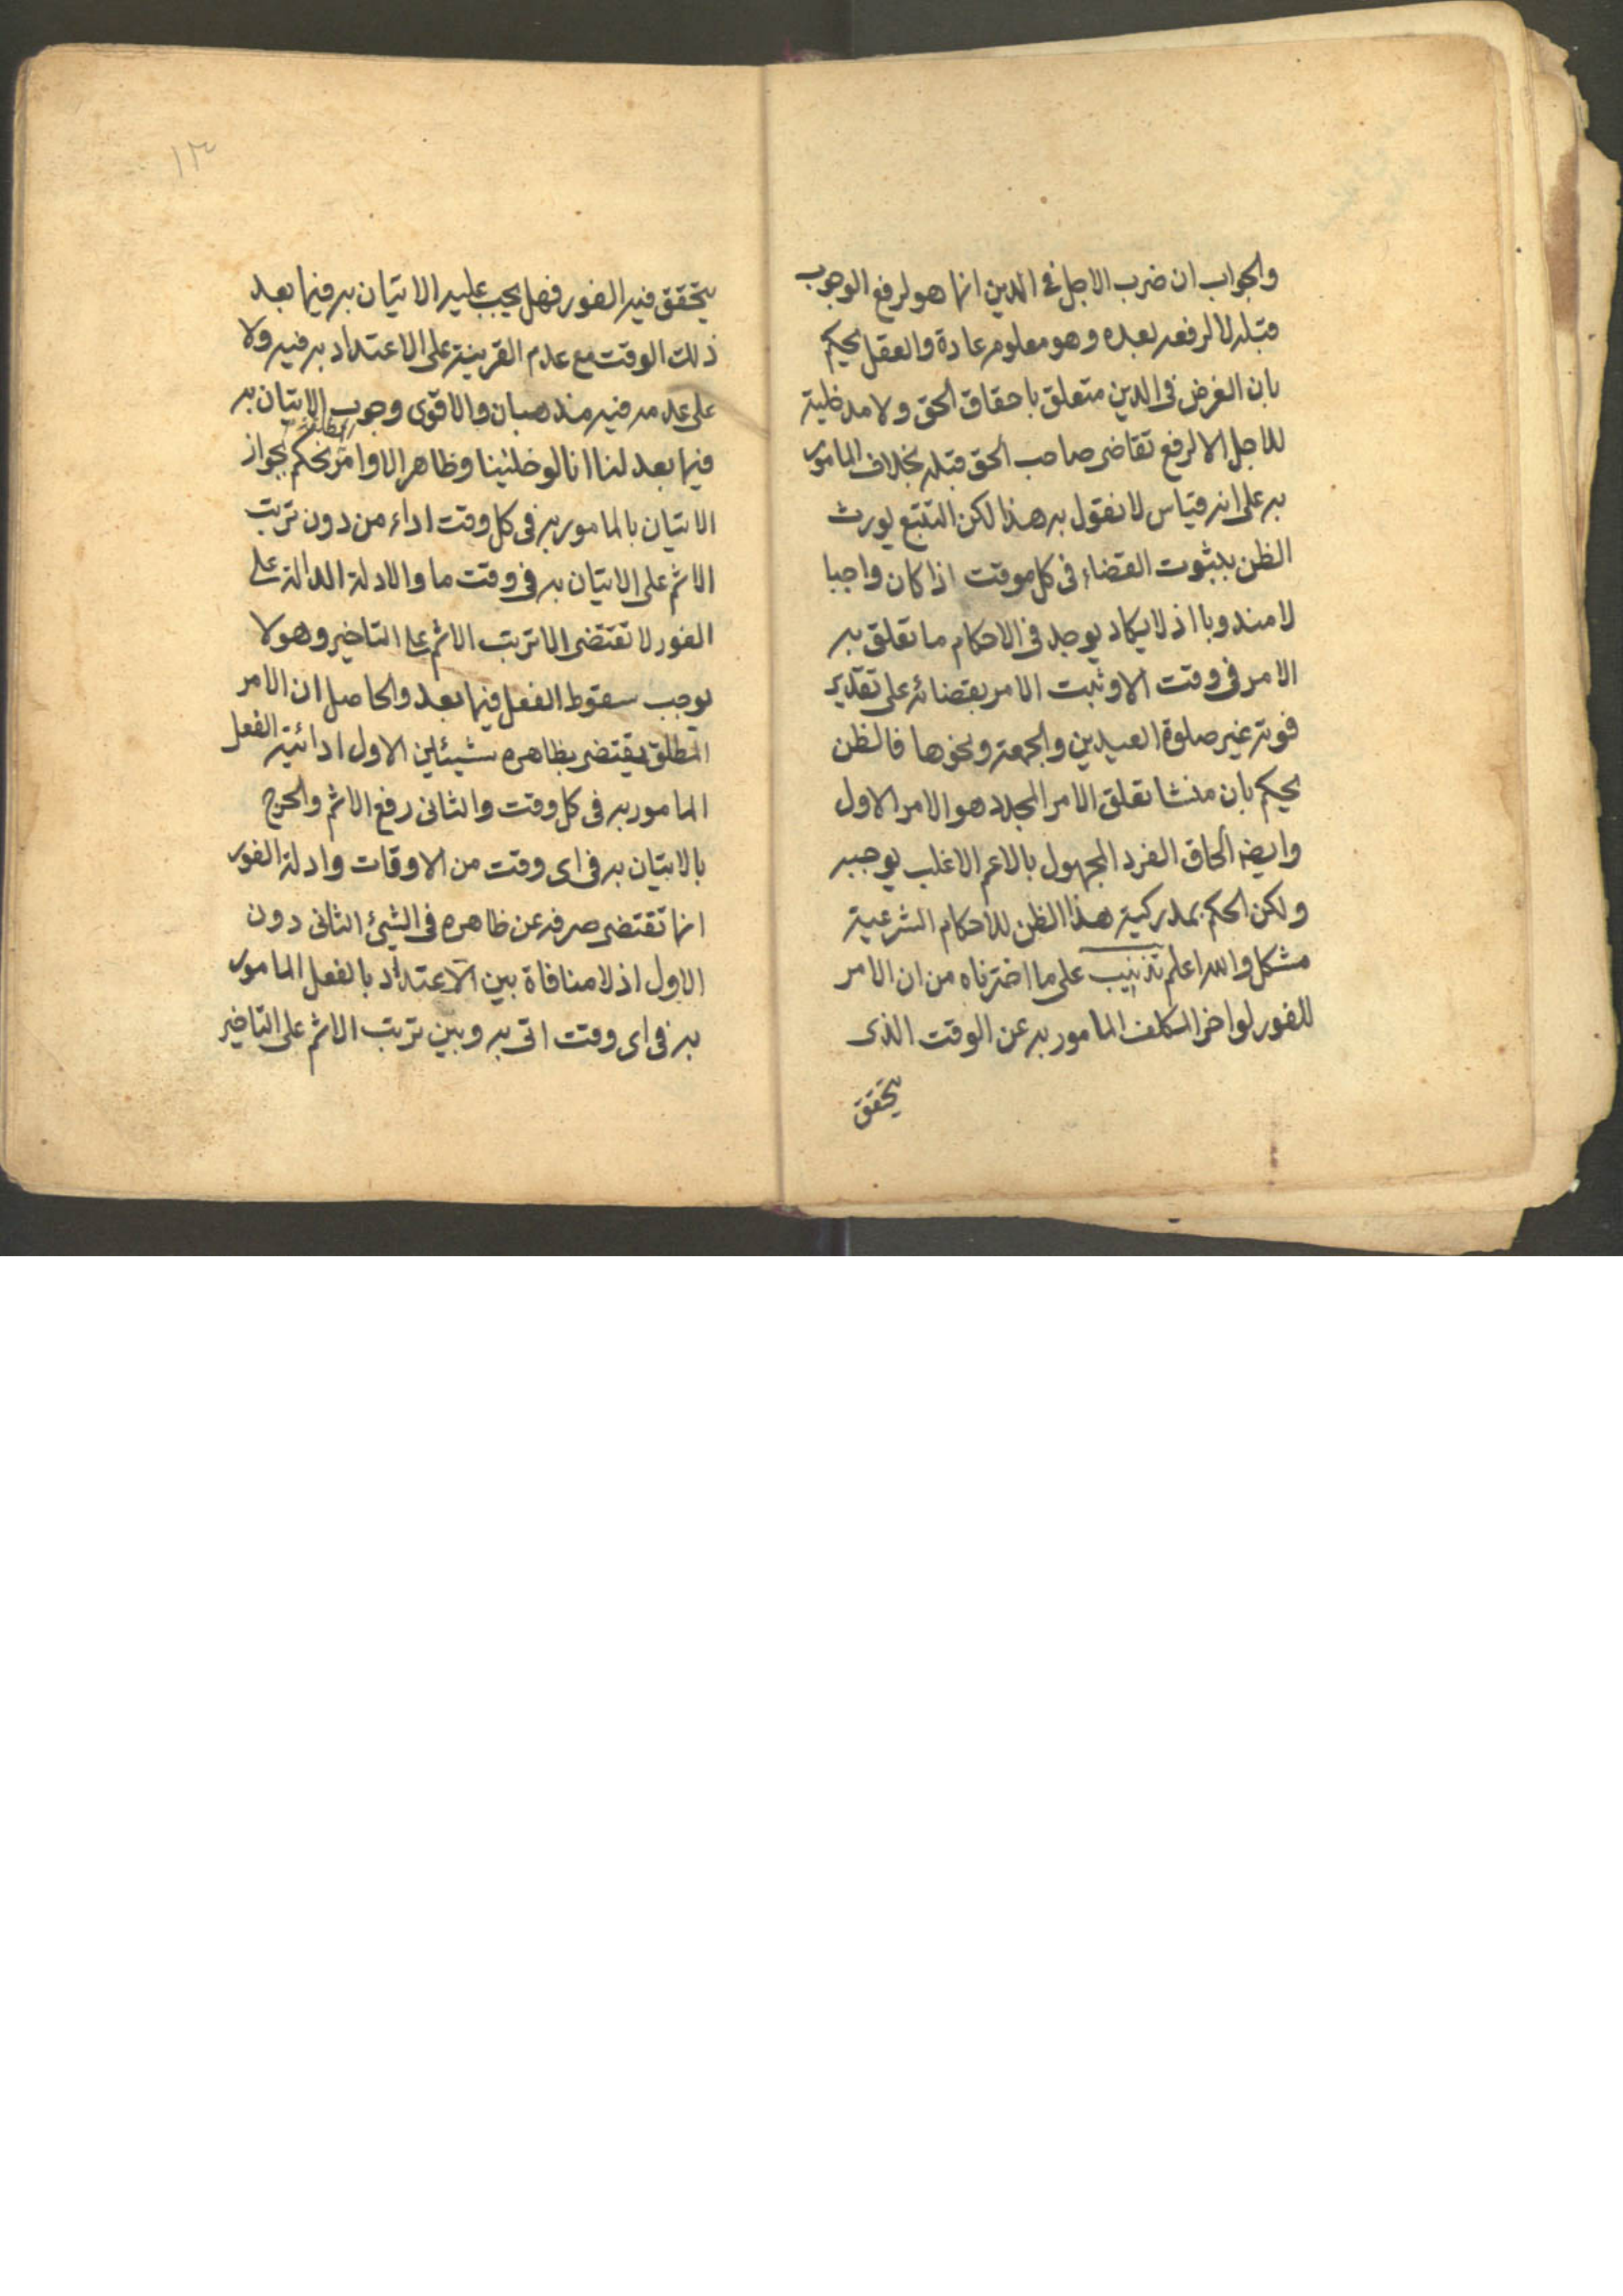 والجواب ان ضرب الاجل فى الدين انما هو لرفع الوجوب
قبله لا لرفعه بعده وهو معلوم عادة والعقل يحكم
بان الغرض فى الدين متعلق باحقاق الحق ولا مدخلية
للاجل الا لرفع تقاضى صاحب الحق قبله بخلاف المامور
به على انه قياس لا نقول به هذا لكن التتبع يورث
الظن بثبوت القضاء فى كل موقت اذا كان واجبا
لا مندوبا اذ لا يكاد يوجد فى الاحكام ما تعلق به
الامر فى وقت الا و ثبت الامر بقضائه على تقدير
فوته غير صلوة العيدين والجمعة ونحوها فالظن
يحكم بان منشا تعلق الامر المجدد هو الامر الاول
وايضا الحاق الفرد المجهول بالاعم الاغلب يوجبه
ولكن الحكم بمدركية هذا الظن للاحكام الشرعية
مشكل والله اعلم تذنيب على ما اخترناه من ان الامر
للفور لو اخر المكلف المامور به عن الوقت الذى
يتحقق
١٣
يتحقق فيه الفور فهل يجب عليه الاتيان به فيما بعد
ذلك الوقت مع عدم القرينة على الاعتداد به فيه ولا
على عدمه فيه مذهبان والاقوى وجوب الاتيان به
فيما بعد لنا انا لو خلينا وظاهر الاوامر المطلقة نحكم بجواز
الاتيان بالمامور به فى كل وقت اداء من دون ترتب
الاثم على الاتيان به فى وقت ما والادلة الدالة على
الفور لا تقتضى الا ترتب الاثم على التاخير وهو لا
يوجب سقوط الفعل فيما بعد والحاصل ان الامر
المطلق يقتضى بظاهره شيئين الاول ادائية الفعل
المامور به فى كل وقت والثانى رفع الاثم والحرج
بالاتيان به فى اى وقت من الاوقات وادلة الفور
انما تقتضى صرفه عن ظاهره فى الشيئ الثانى دون
الاول اذ لا منافاة بين الاعتداد بالفعل المامور
به فى اى وقت اتى به وبين ترتب الاثم على التاخير